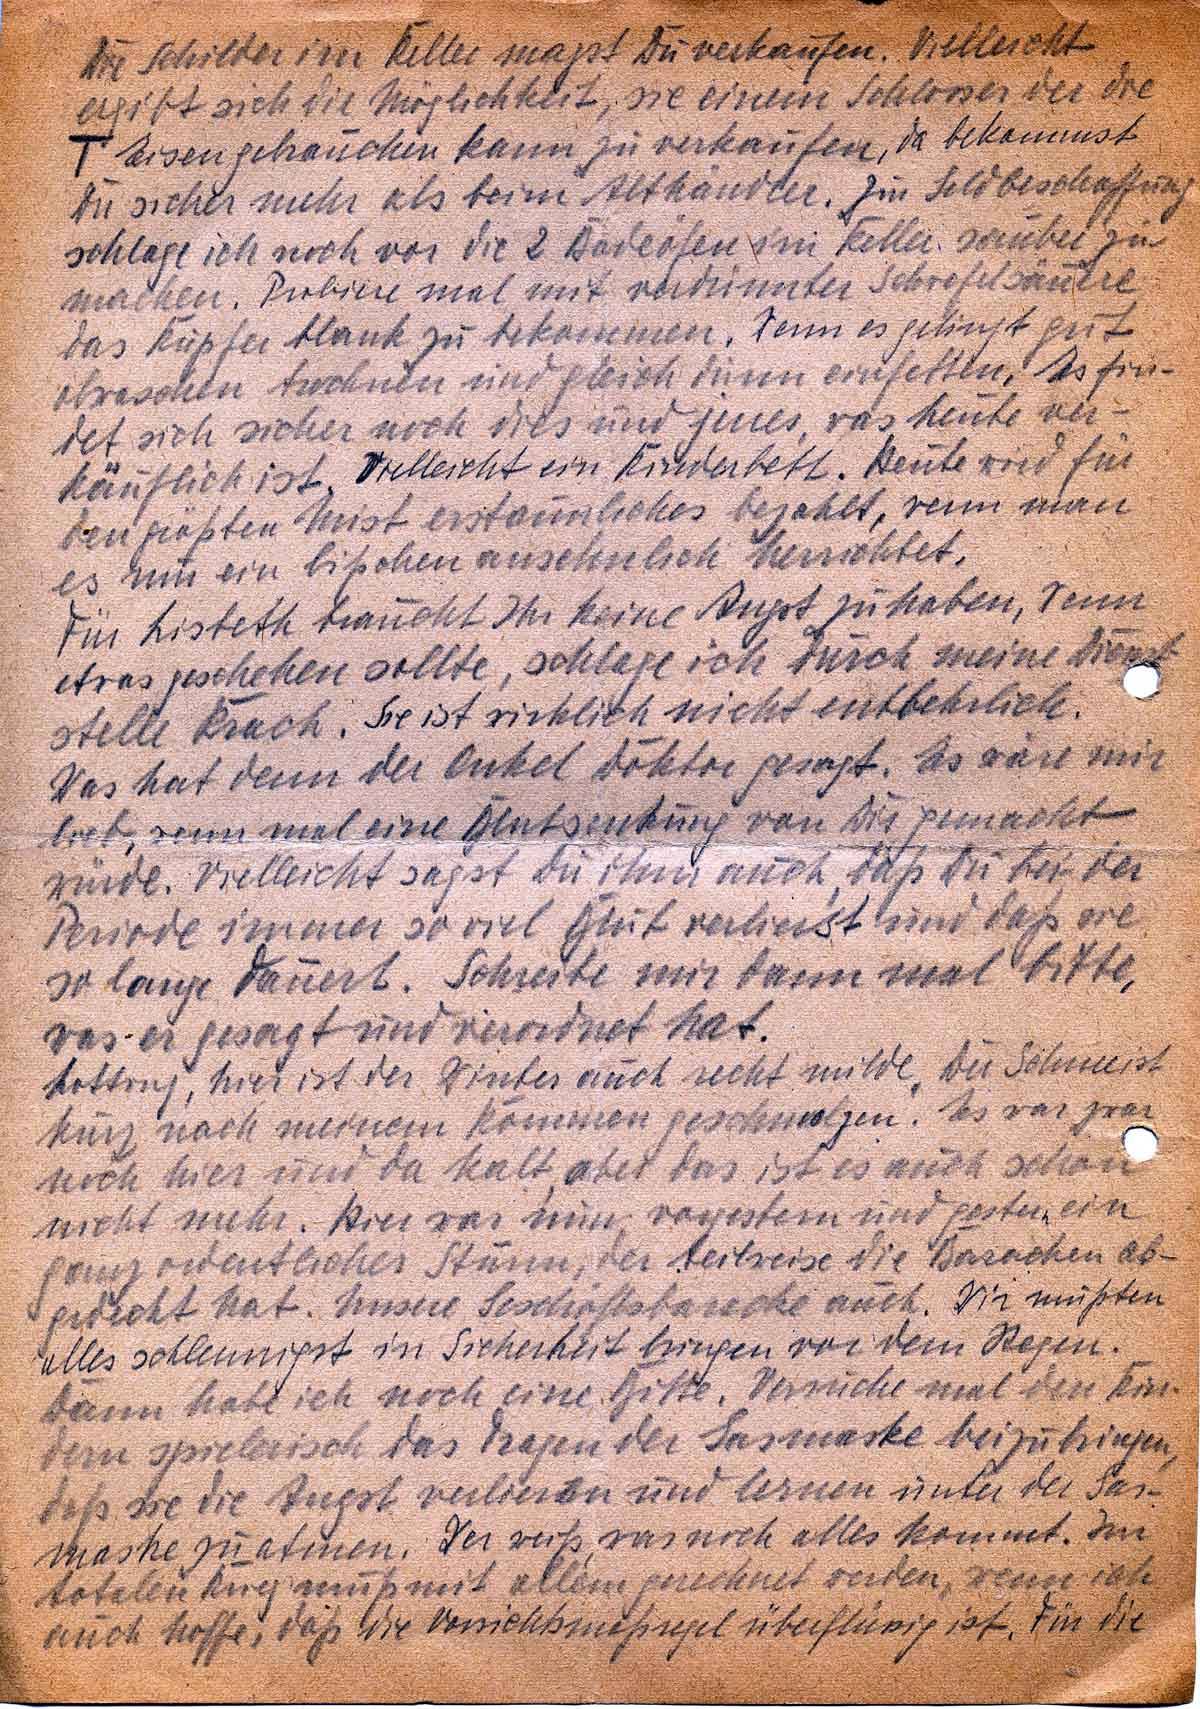 Die Schilder im Keller magst Du verkaufen. Vielleicht
ergibt sich die Möglichkeit, sie einem Schlosser der die
T Eisen gebrauchen kann zu verkaufen, da bekommst
Du sicher mehr als beim Althändler. Zur Geldbeschaffung
schlage ich noch vor die 2 Badeöfen im Keller sauber zu
machen. Probiere mal mit verdünnter Schwefelsäure
das Kupfer blank zu bekommen. Wenn es gelingt gut
abwaschen trocknen und gleich dünn einfetten. Es fin-
det sich sicher noch dies und jenes, was heute ver-
käuflich ist. Vielleicht ein Kinderbett. Heute wird für
den größten Mist erstaunliches bezahlt, wenn man
es nur ein bißchen ansehnlich herrichtet.
Für Lisbeth braucht Ihr keine Angst zu haben, Wenn
etwas geschehen sollte, schlage ich durch meine Dienst
stelle Krach. Sie ist wirklich nicht entbehrlich.
Was hat denn der Onkel Doktor gesagt. Es wäre mir
lieb, wenn mal eine Blutsenkung von Dir gemacht
würde. Vielleicht sagst Du ihm auch, daß Du bei der
Periode immer so viel Blut verlierst und daß sie
so lange dauert. Schreibe mir dann mal bitte,
was er gesagt und verordnet hat.
hier ist der Winter auch recht milde. Der Schnee ist
kurz nach meinem Kommen geschmolzen. Es war zwar
noch hier und da kalt, aber das ist es auch schon
nicht mehr. Hier war nun, vorgestern und gestern ein
ganz ordentlicher Sturm, der teilweise die Baracken ab-
gedeckt hat. Unsere Geschäftsbaracke auch. Wir mußten
alles schleunigst in Sicherheit bringen vor dem Regen.
Dann habe ich noch eine Bitte. Versuche mal den Kin-
dern spielerisch das Tragen der Gasmaske beizubringen,
daß sie die Angst verlieren und lernen unter der Gas-
maske zu atmen. Wer weiß, was noch alles kommt. Im
totalen Krieg muß mit allem gerechnet werden, wenn ich
auch hoffe, daß die Vorsichtsmaßregel überflüssig ist. Für die